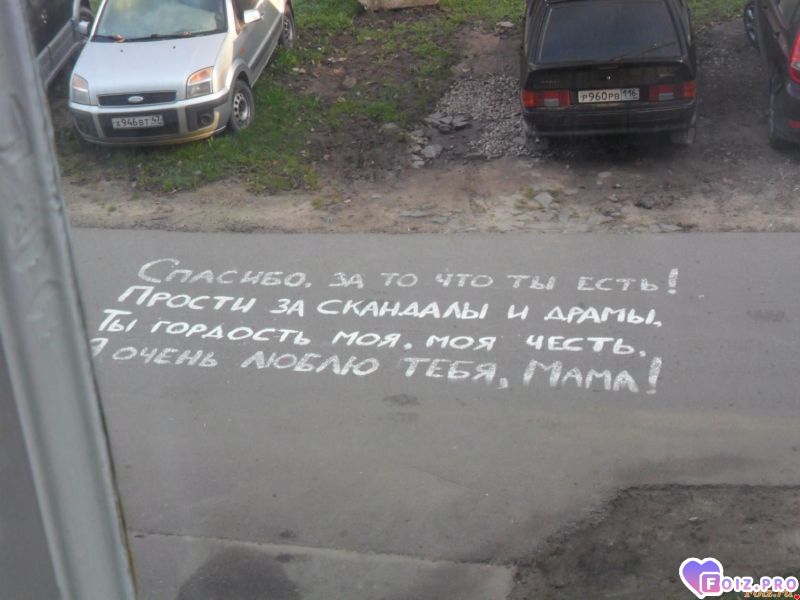 Х946ВТ 47
Р960РВ 116
СПАСИБО, ЗА ТО ЧТО ТЫ ЕСТЬ!
ПРОСТИ ЗА СКАНДАЛЫ И ДРАМЫ,
ТЫ ГОРДОСТЬ МОЯ, МОЯ ЧЕСТЬ,
Я ОЧЕНЬ ЛЮБЛЮ ТЕБЯ, МАМА!
FOIZ.PRO
Foiz.ru